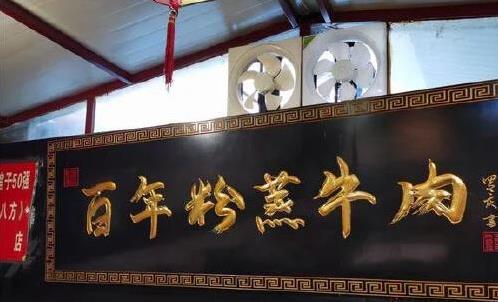 百年粉蒸牛肉
子50强
八方）
店